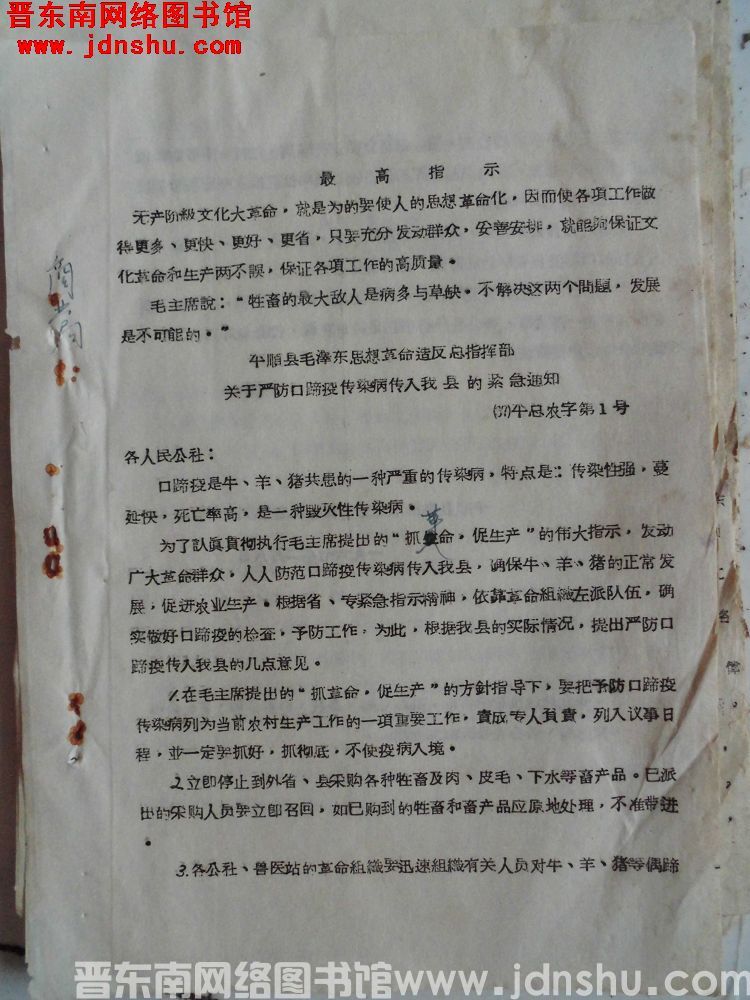 晋东南网络图书馆
www.jdnshu.com
最高指示
无产阶級文化大革命，就是为的要使人的思想革命化，因而使各項工作做
得更多、更快、更好、更省，只要充分发动群众，妥善安排，就能夠保证文
化革命和生产两不誤，保证各項工作的高质量。
毛主席說：“牲畜的最大敌人是病多与草缺。不解决这两个問題，发展
是不可能的。”
平順县毛澤东思想革命造反总指挥部
关于严防口蹄疫传染病传入我县的紧急通知
平总农字第1号
各人民公社：
口蹄疫是牛、羊、猪共患的一种严重的传染病，特点是：传染性强，蔓
延快，死亡率高，是一种毁灭性传染病。
为了認眞貫彻执行毛主席提出的“抓革命，促生产”的伟大指示，发动
广大革命群众，人人防范口蹄疫传染病传入我县，确保牛、羊、猪的正常发
展，促进农业生产。根据省、专紧急指示精神，依靠革命組織左派队伍，确
实做好口蹄疫的检查，予防工作，为此，根据我县的实际情况，提出严防口
蹄疫传入我县的几点意见。
1.在毛主席提出的“抓革命，促生产”的方針指导下，要把予防口蹄疫
传染病列为当前农村生产工作的一項重要工作，責成专人負責，列入议事日
程，並一定要抓好，抓彻底，不使疫病入境。
2.立即停止到外省、县采购各种牲畜及肉、皮毛、下水等畜产品。已派
出的采购人员要立即召回，如已购到的牲畜和畜产品应原地处理，不准带进
。
3.各公社、兽医站的革命組織要迅速組織有关人员对牛、羊、猪等偶蹄
晋东南网络图书馆www.jdnshu.com